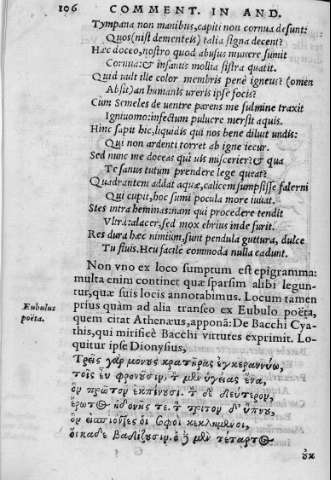 106 COMMENT. IN AND.
Tympana non manibus, capiti non cornua desunt:
Quos (nisi dementeis) talia signa decent?
Hæc doceo, nostro quod abusus munere sumit
Cornua: & insanus mollia sistra quatit.
Quid uult ille color membris penè igneus? (omen
Absit) an humanis ureris ipse focis?
Cum Semeles de uentre parens me fulmine traxit
Igniuomo: infectum puluere mersit aquis.
Hinc sapit hic, liquidis qui nos bene diluit undis:
Qui non ardenti torret ab igne iecur.
Sed nunc me doceas quî uis miscerier? & qua
Te sanus tutum prendere lege queat?
Quadrantem addat aquæ, calicem sumpsisse falerni
Qui cupit, hoc sumi pocula more iuuat.
Stes intra heminas: nam qui procedere tendit
Vltrà: alacer: sed mox ebrius inde furit.
Res dura hæc nimium, sunt pendula guttura, dulce
Tu fluis. Heu facile commoda nulla cadunt.
Non vno ex loco sumptum est epigramma:
multa enim continet quæ sparsim alibi legun-
tur, quæ suis locis annotabimus. Locum tamen
Eubulus poëta.
prius quàm ad alia transeo ex Eubulo poëta,
quem citat Athenæus, apponã: De Bacchi Cya-
this, qui mirificè Bacchi virtutes exprimit. Lo-
quitur ipse Dionysius,
Τρεῖς γὰρ μόνους κρατῆρας ἐγκεραννύω,
τοῖς εὖ φρονοῦσιν. τ̀ μὲν ὑγιείας ἕνα,
ὃν πρῶτον ἐκπίνουσι. τ̀ δὲ δεύτερον,
ἔρωτος ἡδονῆς τε. τ̀ τρίτον δ' ὕπνου,
ὃν εἰσπιόντες οἱ σοφοὶ κεκλημένοι,
οἴκαδε βαδίζουσιν. ὁ ἢ μὲν τέταρτος
οὐκ